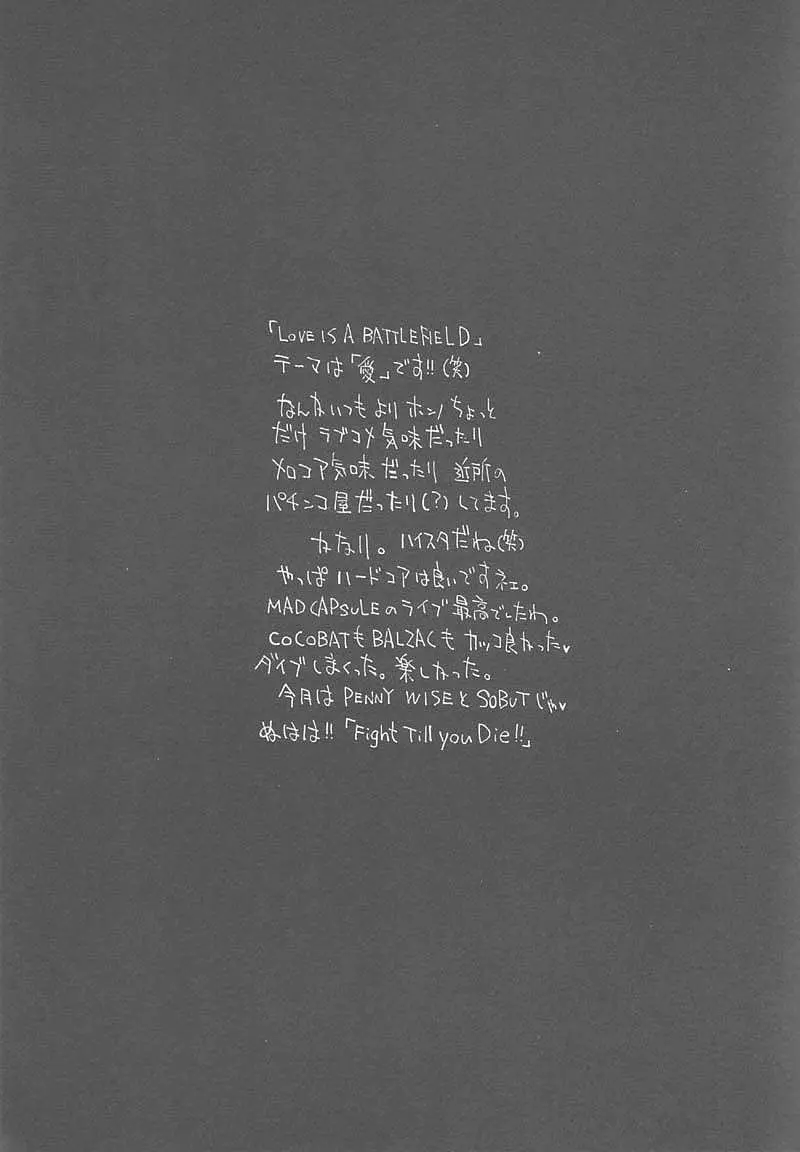 「LOVE IS A BATTLEFIELD」
テーマは「愛」です!!(笑)
なんかいつもより ホンノちょっと
だけ ラブコメ気味だったり
メロコア気味だったり 近所の
パチンコ屋だったり(?)してます。
かなり。ハイスタだね(笑)
やっぱ ハードコアは良いですネェ。
MAD CAPSULEのライブ最高でしたわ。
COCOBATも BALZACも カッコ良かった♥
ダイブしまくった。楽しかった。
今月は PENNY WISEと SOBUTじゃ♥
ぬはは!!「Fight Till you Die!!」